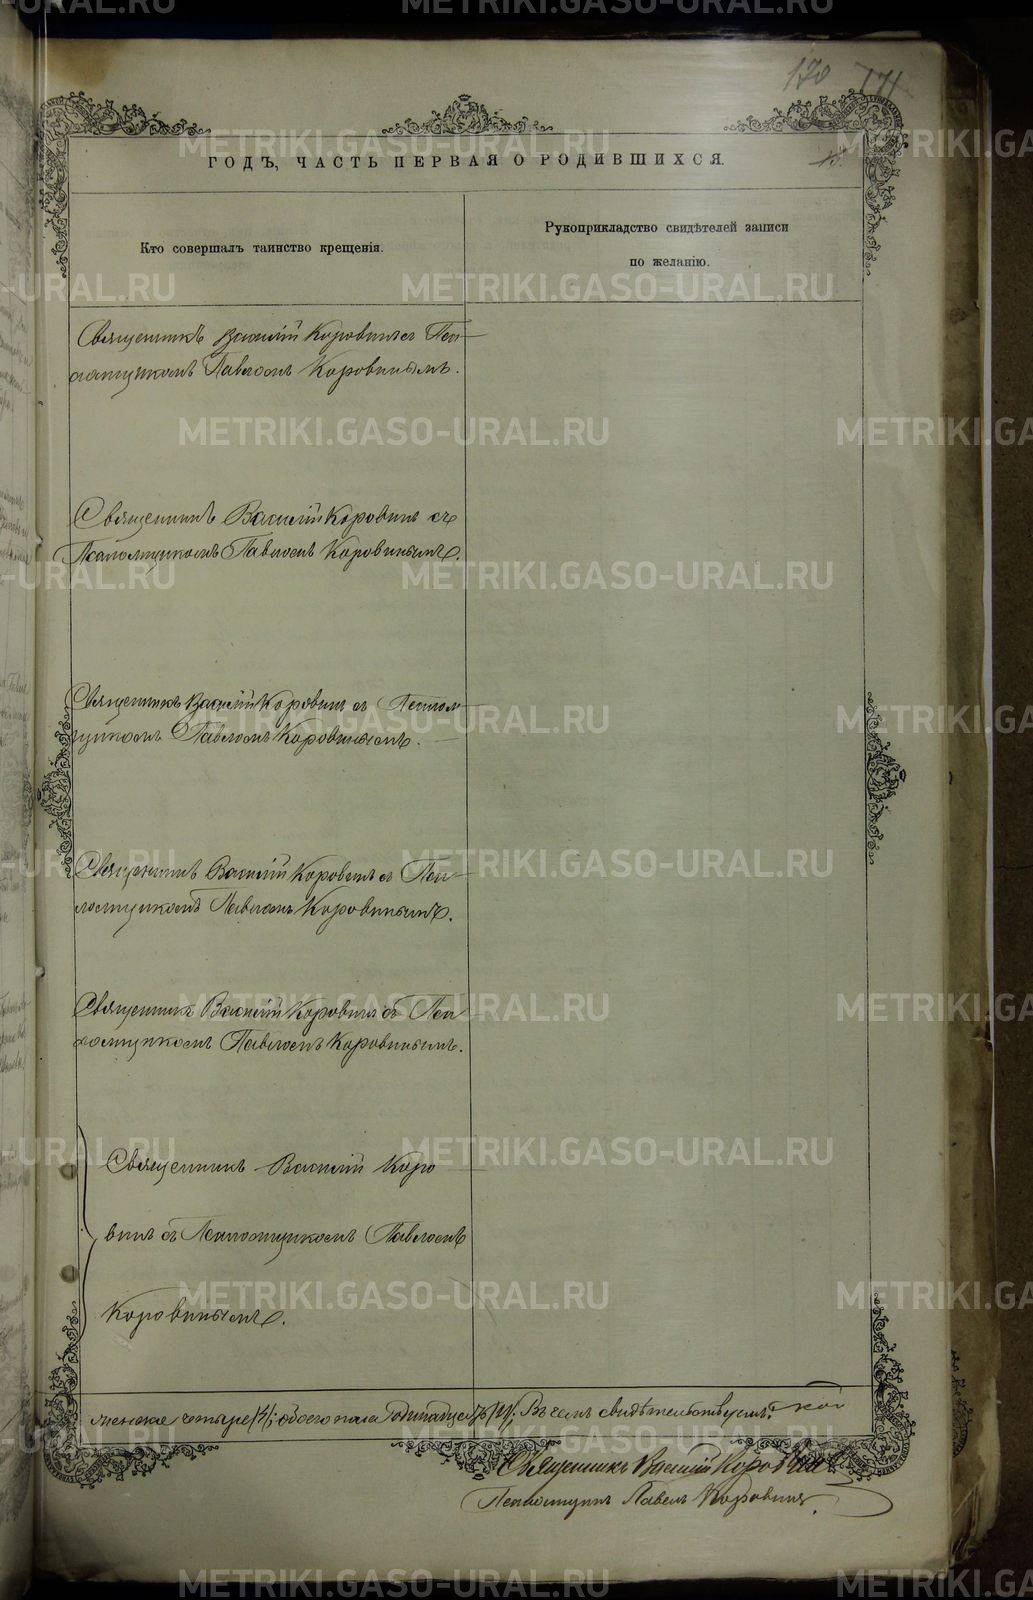 170 171
ГОДЪ, ЧАСТЬ ПЕРВАЯ О РОДИВШИХСЯ.
Кто совершалъ таинство крещенія.
Рукоприкладство свидѣтелей записи
по желанію.
Священникъ Василій Коровинъ съ Пса-
ломщикомъ Павломъ Коровинымъ.
Священникъ Василій Коровинъ съ
Псаломщикомъ Павломъ Коровинымъ.
Священникъ Василій Коровинъ съ Псалом-
щикомъ Павломъ Коровинымъ.
Священникъ Василій Коровинъ съ Пса-
ломщикомъ Павломъ Коровинымъ.
Священникъ Василій Коровинъ съ Пса-
ломщикомъ Павломъ Коровинымъ.
Священникъ Василій Коро
винъ съ Псаломщикомъ Павломъ
Коровинымъ.
женска четыре /4/; обоего пола Одинадцать /11/; Въ чемъ свидѣтельствуемъ:
Священникъ Василій Коровинъ
Псаломщикъ Павелъ Коровинъ.
METRIKI.GASO-URAL.RU